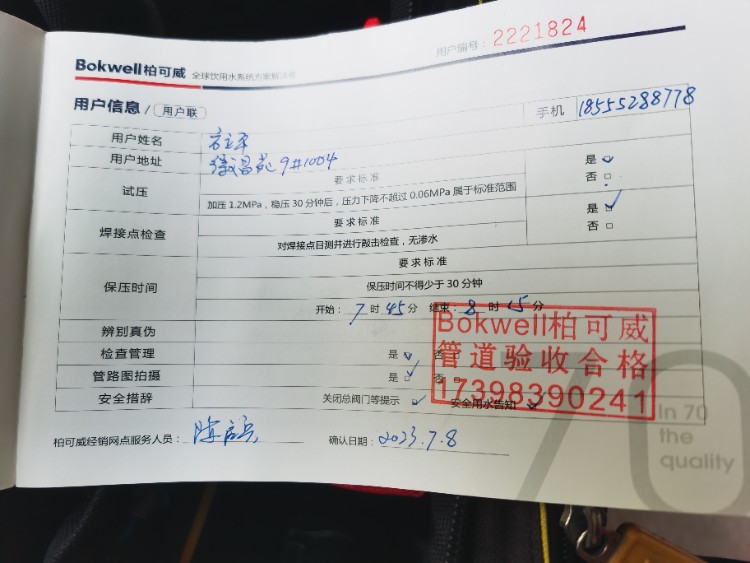 Bokwell柏可威 全球饮用水系统方案解决者
用户编号：2221824
用户信息 / 用户联
手机 18555288778
用户姓名
用户地址 徽昌苑 9#1004
试压
要求标准
加压 1.2MPa，稳压 30 分钟后，压力下降不超过 0.06MPa 属于标准范围
是
否
焊接点检查
要求标准
对焊接点目测并进行敲击检查，无渗水
是
否
保压时间
要求标准
保压时间不得少于 30 分钟
开始：7 时 45 分 结束：8 时 15 分
辨别真伪
检查管理 是 否
管路图拍摄 是 否
安全措辞 关闭总阀门等提示 安全用水告知
Bokwell柏可威
管道验收合格
17398390241
柏可威经销网点服务人员：
确认日期：2023.7.8
70
In 70
the
quality